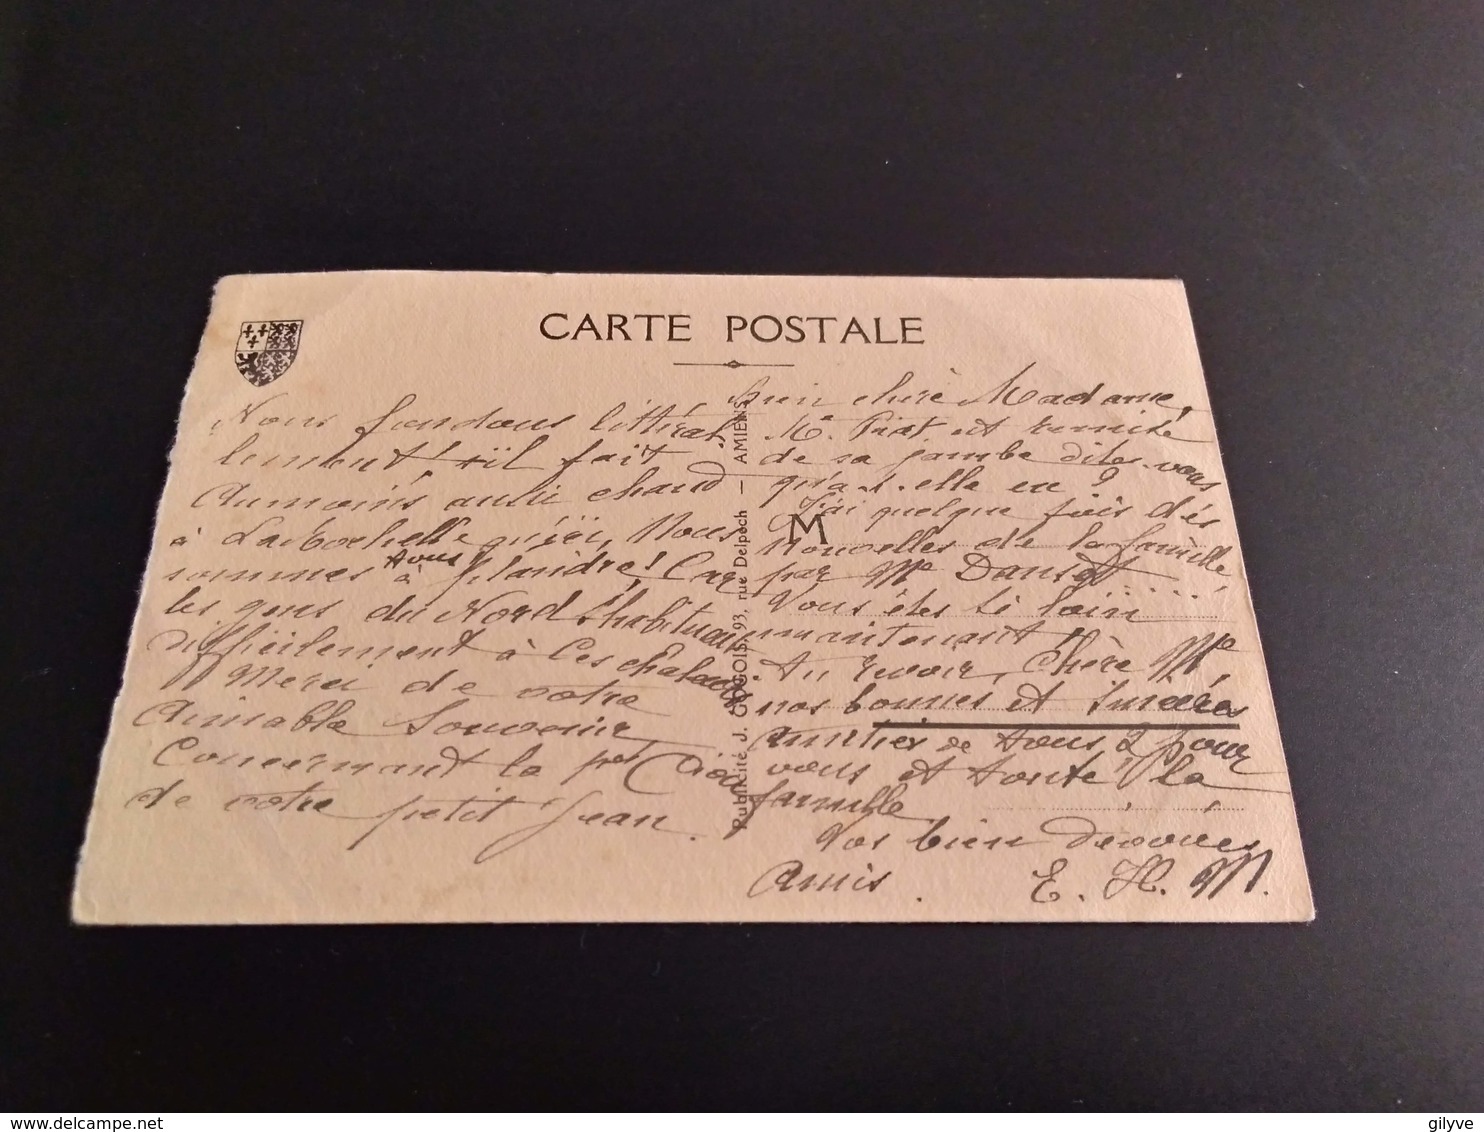 CARTE POSTALE
Nous fondons littéral
lement, s'il fait
Au moins aussi chaud
à La Rochelle qu'ici, Nous
sommes tous à plaindre! Car
les gens du Nord s'habituent
difficilement à Ces chaleurs
Merci de votre
Aimable Souvenir
Concernant la
de votre petit Jean.
Publicité J. GOGOIS, 93, rue Delpech — AMIENS.
bien chère Madame,
Me Piat est remise
de sa jambe dites-vous
qu'a-t-elle eu?
J'ai quelque fois des
M
nouvelles de la famille
par Me
Vous êtes si loin
maintenant
Au revoir, Chère Me
nos bonnes et sincères
amitiés de tous 2 pour
vous et toute la
famille
Vos bien dévoués
Amis. E. H. M.
delcampe.net
gilyve